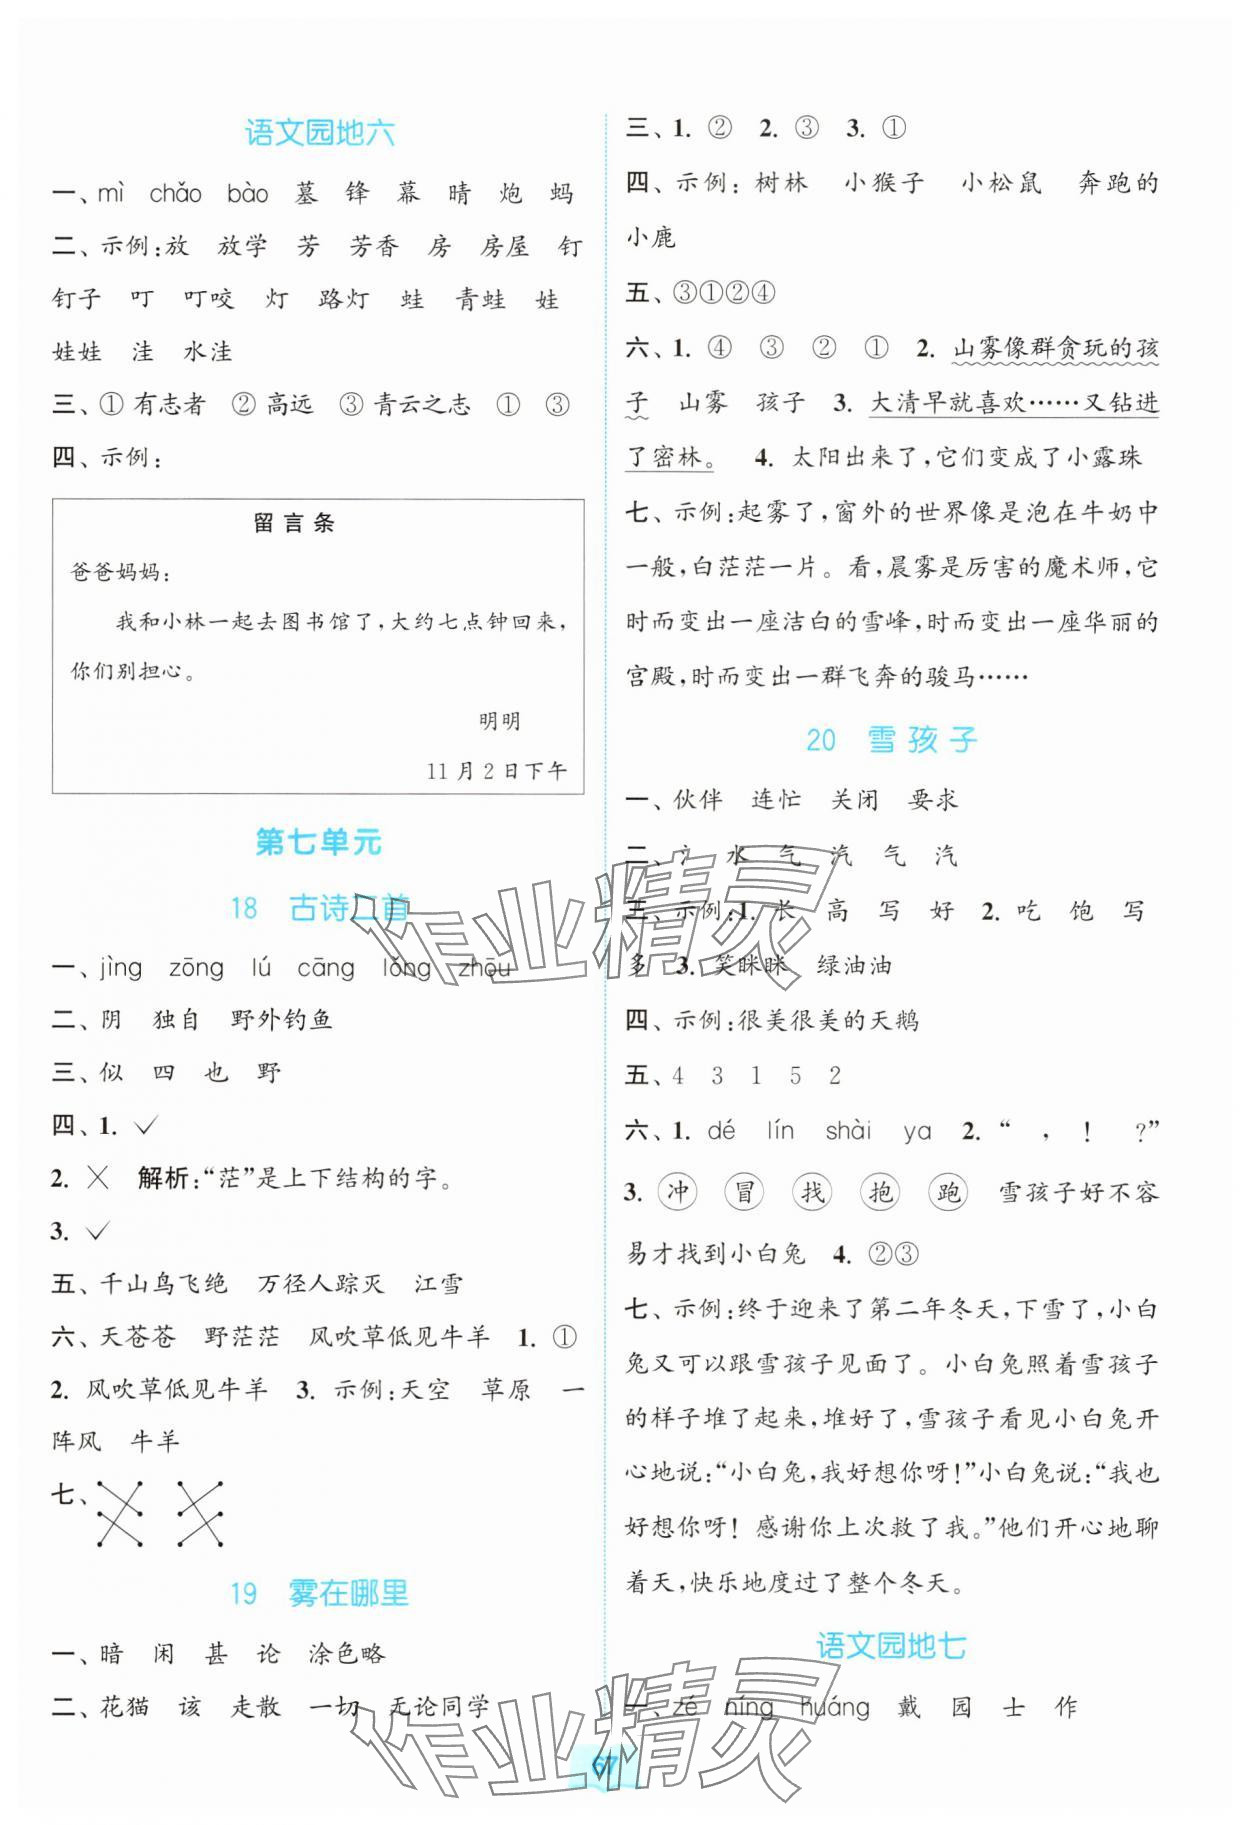 语文园地六
一、mì chǎo bào 墓 锋 幕 晴 炮 蚂
二、示例:放 放学 芳 芳香 房 房屋 钉
钉子 叮 叮咬 灯 路灯 蛙 青蛙 娃
娃娃 洼 水洼
三、① 有志者 ② 高远 ③ 青云之志 ① ③
四、示例:
留言条
爸爸妈妈:
我和小林一起去图书馆了,大约七点钟回来,
你们别担心。
明明
11月2日下午
第七单元
18 古诗二首
一、jìng zōng lú cāng lǒng zhōu
二、阴 独自 野外钓鱼
三、似 四 也 野
四、1. ✓
2. ✕ 解析:“茫”是上下结构的字。
3. ✓
五、千山鸟飞绝 万径人踪灭 江雪
六、天苍苍 野茫茫 风吹草低见牛羊 1. ①
2. 风吹草低见牛羊 3. 示例:天空 草原 一
阵风 牛羊
七、
19 雾在哪里
一、暗 闲 甚 论 涂色略
二、花猫 该 走散 一切 无论同学
三、1. ② 2. ③ 3. ①
四、示例:树林 小猴子 小松鼠 奔跑的
小鹿
五、③①②④
六、1. ④ ③ ② ① 2. 山雾像群贪玩的孩
子 山雾 孩子 3. 大清早就喜欢……又钻进
了密林。 4. 太阳出来了,它们变成了小露珠
七、示例:起雾了,窗外的世界像是泡在牛奶中
一般,白茫茫一片。看,晨雾是厉害的魔术师,它
时而变出一座洁白的雪峰,时而变出一座华丽的
宫殿,时而变出一群飞奔的骏马……
20 雪孩子
一、伙伴 连忙 关闭 要求
二、氵 水 气 汽 气 汽
三、示例:1. 长 高 写 好 2. 吃 饱 写
多 3. 笑眯眯 绿油油
四、示例:很美很美的天鹅
五、4 3 1 5 2
六、1. dé lín shài ya 2. “ , ! ?”
3. 冲 冒 找 抱 跑 雪孩子好不容
易才找到小白兔 4. ②③
七、示例:终于迎来了第二年冬天,下雪了,小白
兔又可以跟雪孩子见面了。小白兔照着雪孩子
的样子堆了起来,堆好了,雪孩子看见小白兔开
心地说:“小白兔,我好想你呀!”小白兔说:“我也
好想你呀! 感谢你上次救了我。”他们开心地聊
着天,快乐地度过了整个冬天。
语文园地七
一、zé níng huáng 戴 园 士 作
67
作业精灵
作业精灵